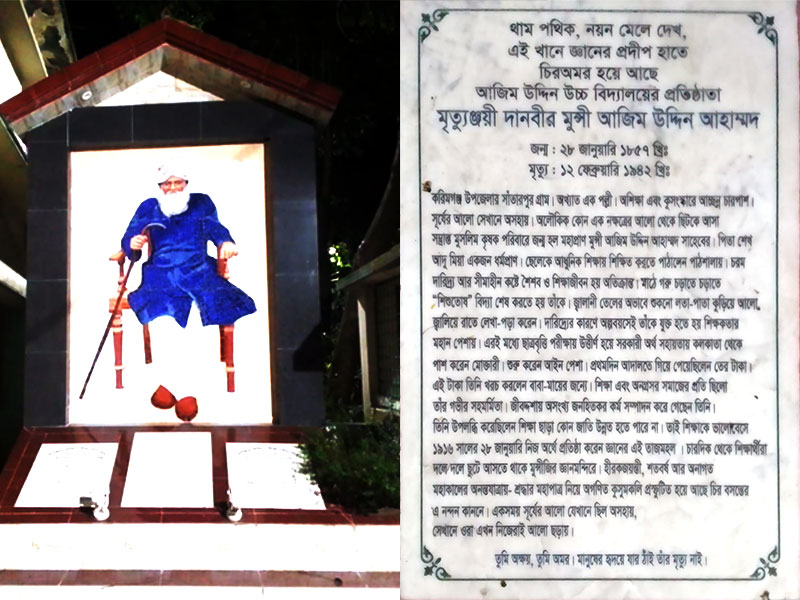 থাম পথিক, নয়ন মেলে দেখ,
এই খানে জ্ঞানের প্রদীপ হাতে
চিরঅমর হয়ে আছে
আজিম উদ্দিন উচ্চ বিদ্যালয়ের প্রতিষ্ঠাতা
মৃত্যুঞ্জয়ী দানবীর মুন্সী আজিম উদ্দিন আহাম্মদ
জন্ম : ২৮ জানুয়ারি ১৮৫৭ খ্রিঃ
মৃত্যু : ১২ ফেব্রুয়ারি ১৯৪২ খ্রিঃ
করিমগঞ্জ উপজেলার সাঁতারপুর গ্রাম। অখ্যাত এক পল্লী। অশিক্ষা এবং কুসংস্কারে আচ্ছন্ন চারপাশ।
সূর্যের আলো সেখানে অসহায়। অলৌকিক কোন এক নক্ষত্রের আলো থেকে ছিটকে আসা
সম্ভ্রান্ত মুসলিম কৃষক পরিবারে জন্ম হল মহাপ্রাণ মুন্সী আজিম উদ্দিন আহাম্মদ সাহেবের। পিতা শেখ
আদু মিয়া একজন ধর্মপ্রাণ। ছেলেকে আধুনিক শিক্ষায় শিক্ষিত করতে পাঠালেন পাঠশালায়। চরম
দারিদ্র্য আর সীমাহীন কষ্টে শৈশব ও শিক্ষাজীবন হয় অতিক্রান্ত। মাঠে গরু চড়াতে চড়াতে
“শিশুতোষ” বিদ্যা শেষ করতে হয় তাঁকে। জ্বালানী তেলের অভাবে শুকনো লতা-পাতা কুড়িয়ে আলো
জ্বালিয়ে রাতে লেখা-পড়া করেন। দারিদ্র্যের কারণে অল্পবয়সেই তাঁকে যুক্ত হতে হয় শিক্ষকতার
মহান পেশায়। এরই মধ্যে ছাত্রবৃত্তি পরীক্ষায় উত্তীর্ণ হয়ে সরকারী অর্থ সহায়তায় কলকাতা থেকে
পাশ করেন মোক্তারী। শুরু করেন আইন পেশা। প্রথমদিন আদালতে গিয়ে পেয়েছিলেন তের টাকা।
এই টাকা তিনি খরচ করলেন বাবা-মায়ের জন্যে। শিক্ষা এবং অনগ্রসর সমাজের প্রতি ছিলো
তাঁর গভীর সহমর্মিতা। জীবদ্দশায় অসংখ্য জনহিতকর কর্ম সম্পাদন করে গেছেন তিনি।
তিনি উপলব্ধি করেছিলেন শিক্ষা ছাড়া কোন জাতি উন্নত হতে পারে না। তাই শিক্ষাকে ভালোবেসে
১৯১৬ সালের ২৮ জানুয়ারি নিজ অর্থে প্রতিষ্ঠা করেন জ্ঞানের এই তাজমহল । চারদিক থেকে শিক্ষার্থীরা
দলে দলে ছুটে আসতে থাকে মুন্সীজির জ্ঞানমন্দিরে। হীরকজয়ন্তী, শতবর্ষ আর অনাগত
মহাকালের অনন্তযাত্রায়- শ্রদ্ধার মহাপাত্র নিয়ে অগণিত কুসুমকলি প্রস্ফুটিত হয়ে আছে চির বসন্তের
এ নন্দন কাননে। একসময় সূর্যের আলো যেখানে ছিল অসহায়,
সেখানে ওরা এখন নিজেরাই আলো ছড়ায়।
তুমি অক্ষয়, তুমি অমর। মানুষের হৃদয়ে যার ঠাঁই তাঁর মৃত্যু নাই।